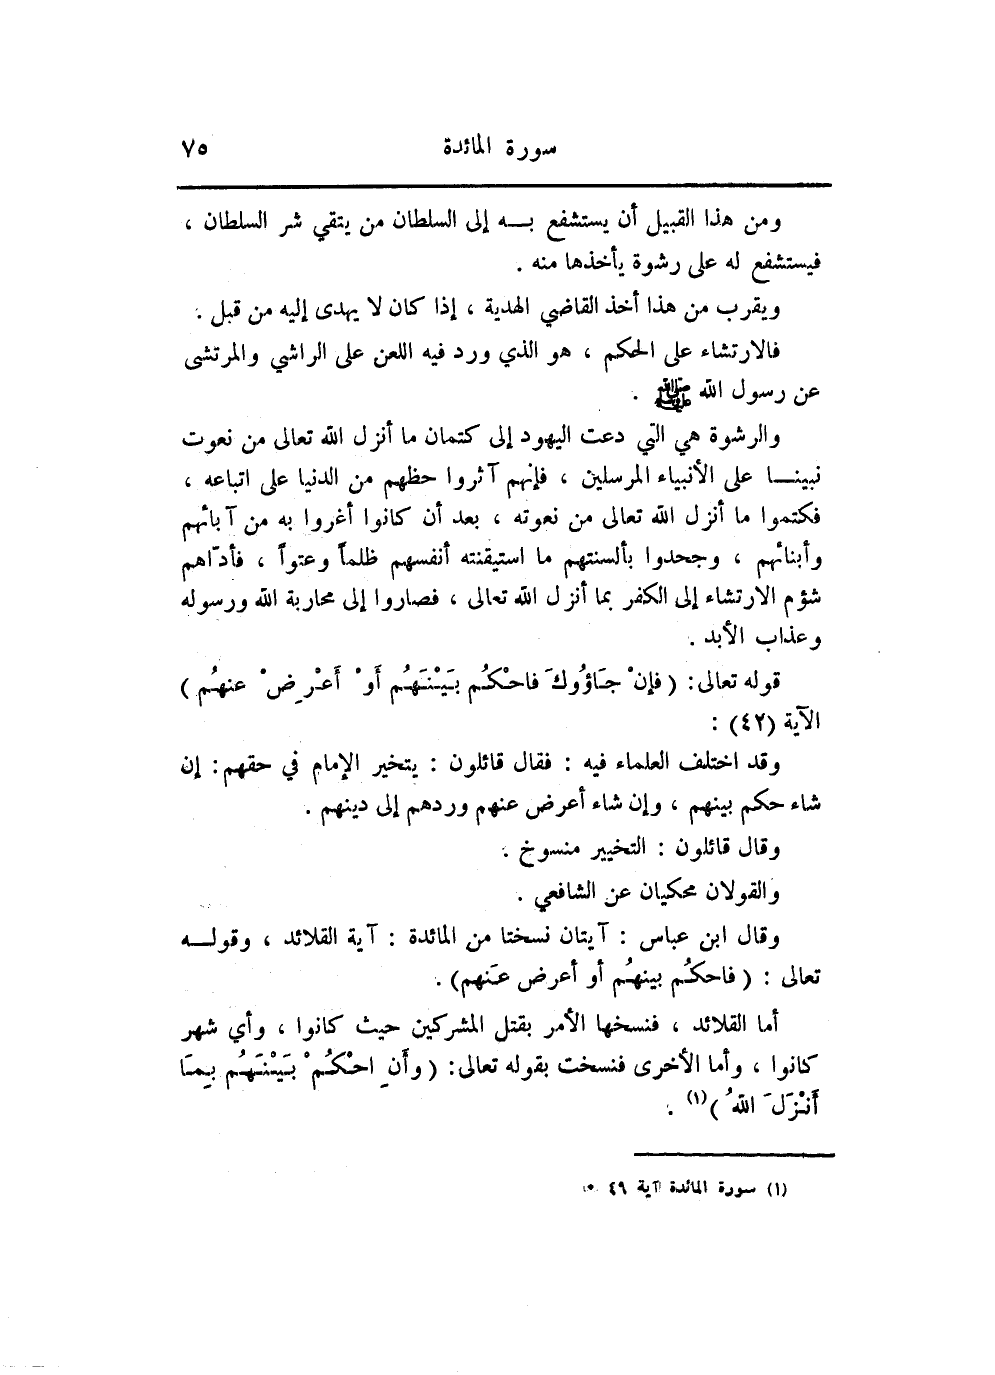 سورة المائدة ٧٥
ومن هذا القبيل أن يستشفع بـــه إلى السلطان من يتقي شر السلطان ،
فيستشفع له على رشوة يأخذها منه .
ويقرب من هذا أخذ القاضي الهدية ، إذا كان لا يهدى إليه من قبل .
فالارتشاء على الحكم ، هو الذي ورد فيه اللعن على الراشي والمرتشى
عن رسول الله ﷺ .
والرشوة هي التي دعت اليهود إلى كتمان ما أنزل الله تعالى من نعوت
نبينـــا على الأنبياء المرسلين ، فإنهم آثروا حظهم من الدنيا على اتباعه ،
فكتموا ما أنزل الله تعالى من نعوته ، بعد أن كانوا أغروا به من آبائهم
وأبنائهم ، وجحدوا بألسنتهم ما استيقنته أنفسهم ظلماً وعتواً ، فأدّاهم
شؤم الارتشاء إلى الكفر بما أنزل الله تعالى ، فصاروا إلى محاربة الله ورسوله
وعذاب الأبد .
قوله تعالى: ( فإنْ جَاؤُوكَ فاحْكُم بَيْنَهُم أَوْ أَعْرِضْ عنهُم )
الآية (٤٢) :
وقد اختلف العلماء فيه : فقال قائلون : يتخير الإمام في حقهم: إن
شاء حكم بينهم ، وإن شاء أعرض عنهم وردهم إلى دينهم .
وقال قائلون : التخيير منسوخ .
والقولان محكيان عن الشافعي .
وقال ابن عباس : آيتان نسختا من المائدة : آية القلائد ، وقولـــه
تعالى : ( فاحكُم بينهُم أو أعرض عَنهم) .
أما القلائد ، فنسخها الأمر بقتل المشركين حيث كانوا ، وأي شهر
كانوا ، وأما الأخرى فنسخت بقوله تعالى: ( وأَنِ احْكُمْ بَيْنَهُم بِمَا
أَنْزَلَ اللهُ )(١) .
(١) سورة المائدة آية ٤٩ .